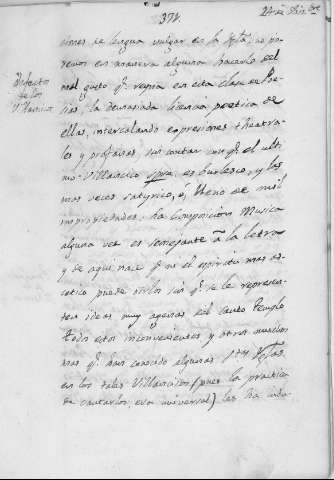 374.
24 de Dizbre
Defectos
de los
Villancicos
ciones de lengua vulgar en la Yglª, no po-
demos en manera alguna hacerlo del
mal gusto q. reyna en esta clase de Poe-
sias, la demasiada licencia poetica de
ellas, intercalando expresiones theatra-
les y profanas, sin contar con q. el ulti-
mo Villancico spre. es burlesco, y las
mas veces satyrico, ó lleno de mil
impropiedades; la Composicion Musica
alguna vez es semejante a la letra
y de aqui nace q. ni el espiritu mas as-
cetico puede oirlos sin q. se le represen-
ten ideas muy agenas del Santo Templo
todos estos inconvenientes y otros muchos
mas q. han conocido algunas Stas Yglas.
en los tales Villancicos (pues la practica
de cantarlos, era universal) les ha indu-